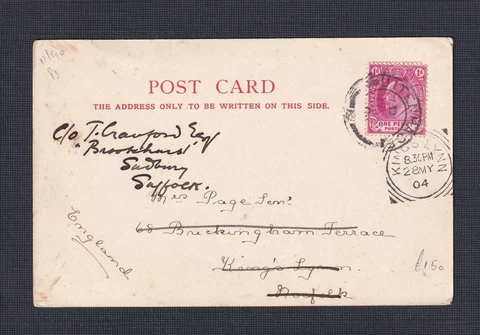 POST CARD
THE ADDRESS ONLY TO BE WRITTEN ON THIS SIDE.
1d 1d
ONE PENNY
POST
KING'S LYNN
8.30PM
28MY
04
c/o T. Crauford Esqre
"Brookhurst"
Sudbury
Suffolk.
Mrs Page Senr
68 Buckingham Terrace
King's Lynn.
Norfolk
England
£1.50